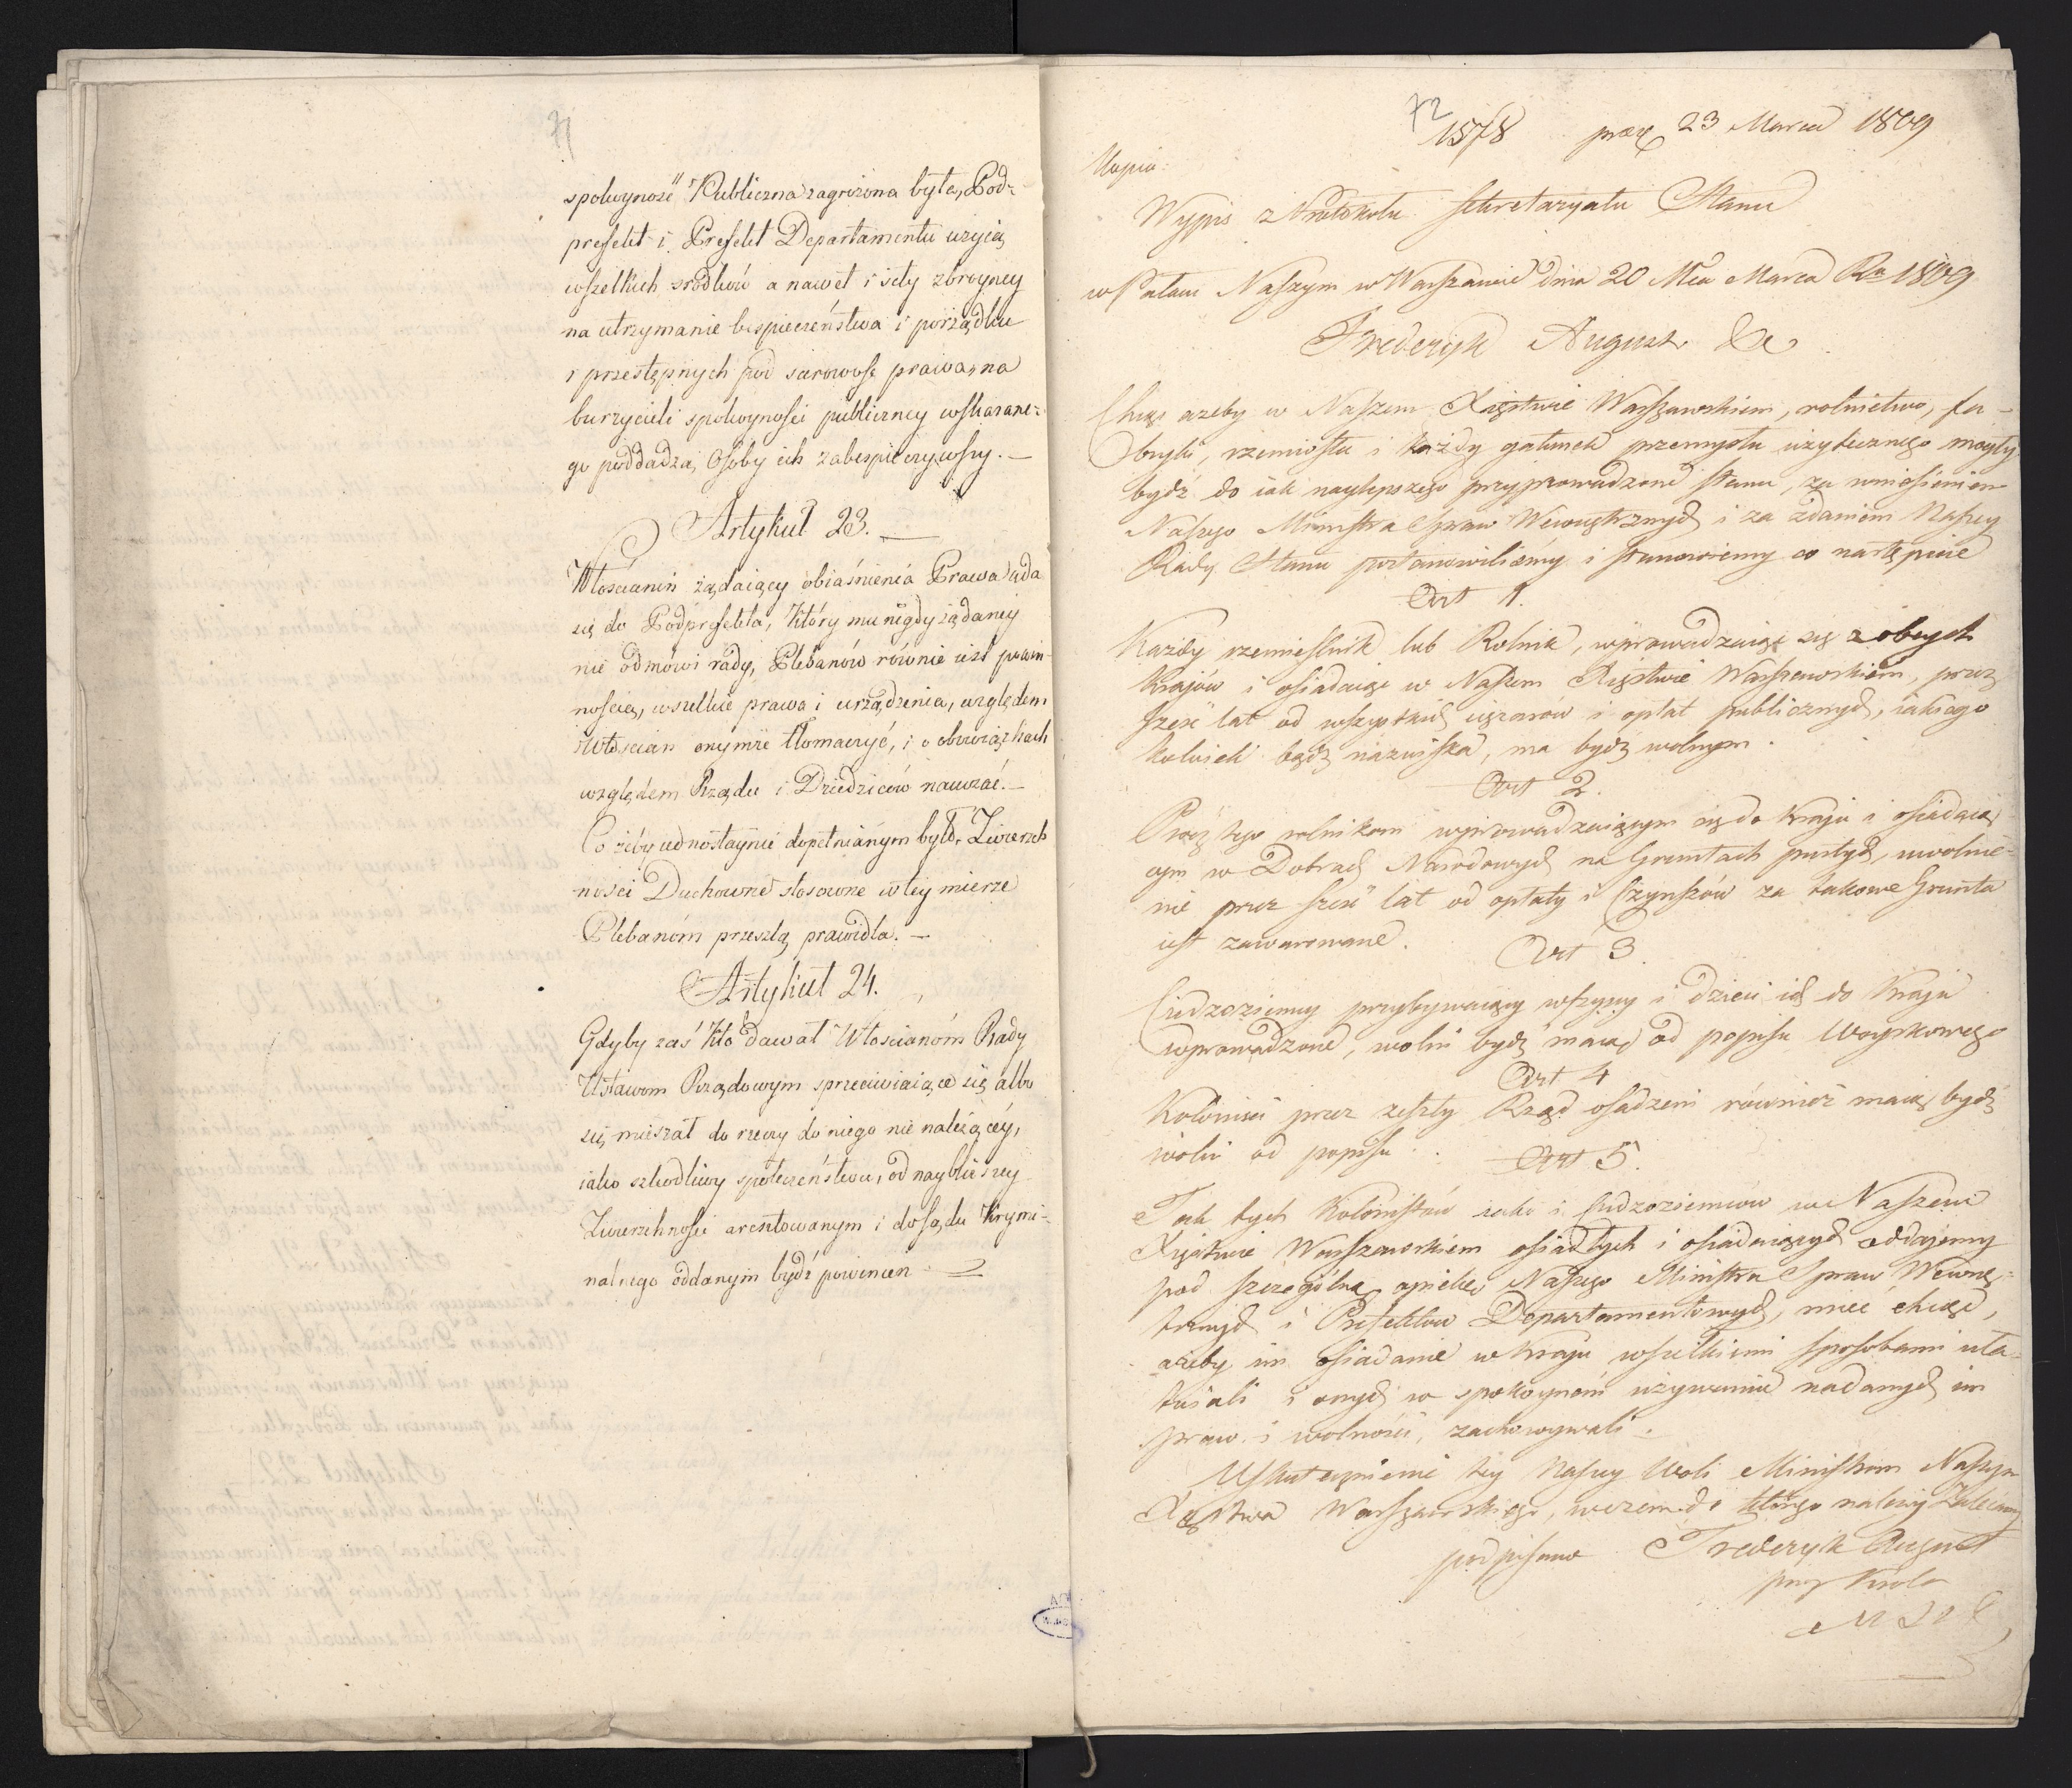 71
spokoyność Publiczna zagrożona była, Pod-
prefekt i Prefekt Departamentu użyią
wszelkich srodków a nawet i siły zbroyney
na utrzymanie bespieczeństwa i porządku
i przestępnych pod surowość prawa na
burzycieli spokoyności publiczney wskazane-
go poddadzą, Osoby ich zabespieczywszy. —
Artykuł 23. —
Włościanin żądaiący obiaśnienia Prawa uda
się do Podprefekta, który mu nigdy żądaney
nie odmówi rady, Plebanów równie iest powin-
nością, wszelkie prawa i urządzenia, względem
Włościan onymże tłomaczyć, i o obowiązkach
względem Rządu i Dziedziców nauczać. —
Co żeby iednostaynie dopełnianym było, Zwierzch
ności Duchowne stosowne w tey mierze
Plebanóm przeszlą prawidła. —
Artykuł 24.
Gdyby zaś kto dawał Włościanóm Rady
Ustawom Rządowym sprzeciwiaiące się albo
się mieszał do rzeczy do niego nie należącéy,
iako szkodliwy społeczeństwu, od naybliższey
Zwierzchności aresztowanym i do sądu krymi-
nalnego oddanym bydź powinien
72
1578 praez 23 Marca 1809
Kopia:
Wypis z Protokułu Sekretaryatu Stanu
w Pałacu Naszym w Warszawie dnia 20 Mca Marca Ru 1809
Frederyk August &c
Chcąc ażeby w Naszem Xięstwie Warszawskiem, rolnictwo, fa-
bryki, rzemiosła i każdy gatunek przemysłu użytecznego mogły
bydź do iak naylepszego przyprowadzone stanu, za wniesieniem
Naszego Ministra Spraw Wewnętrznych i za zdaniem Naszey
Rady Stanu postanowiliśmy i stanowiemy co następuie
Art 1.
Każdy rzemieślnik lub Rolnik, wprowadzaiąc się z obcych
krajów i osiadaiąc w Naszem Xięstwie Warszawskiem, przez
sześć lat od wszystkich ciężarów i opłat publicznych, iakiego
kolwiek bądź nazwiska, ma bydź wolnym.
Art 2.
Prócz tego rolnikom wprowadzaiącym się do kraju i osiadaią
cym w Dobrach Narodowych na Gruntach pustych, uwolnie-
nie przez sześć lat od opłaty i Czynszów za takowe Grunta
iest zawarowane.
Art 3.
Cudzoziemcy przybywaiący wszyscy i dzieci ich do kraju
wprowadzone, wolni bydź maią od popisu Woyskowego
Art 4
Koloniści przez zeszły Rząd osadzeni również maią bydź
wolni od popisu.
Art 5.
Tak tych Kolonistów iako i Cudzoziemców w Naszem
Xięstwie Warszawskiem osiadłych i osiadaiących oddajemy
pod szczególną opiekę Naszego Ministra Spraw Wewnę-
trznych i Prefektów Departamentowych, mieć chcąc,
ażeby im osiadanie w kraju wszelkiemi sposobami uła-
twiali i onych w spokoynem używaniu nadanych im
praw i wolności, zachowywali.
Uskutecznienie tey Naszey Woli Ministrom Naszym
Xięstwa Warszawskiego, w czem do którego należy Zalecamy
podpisano Frederyk August
przez Króla